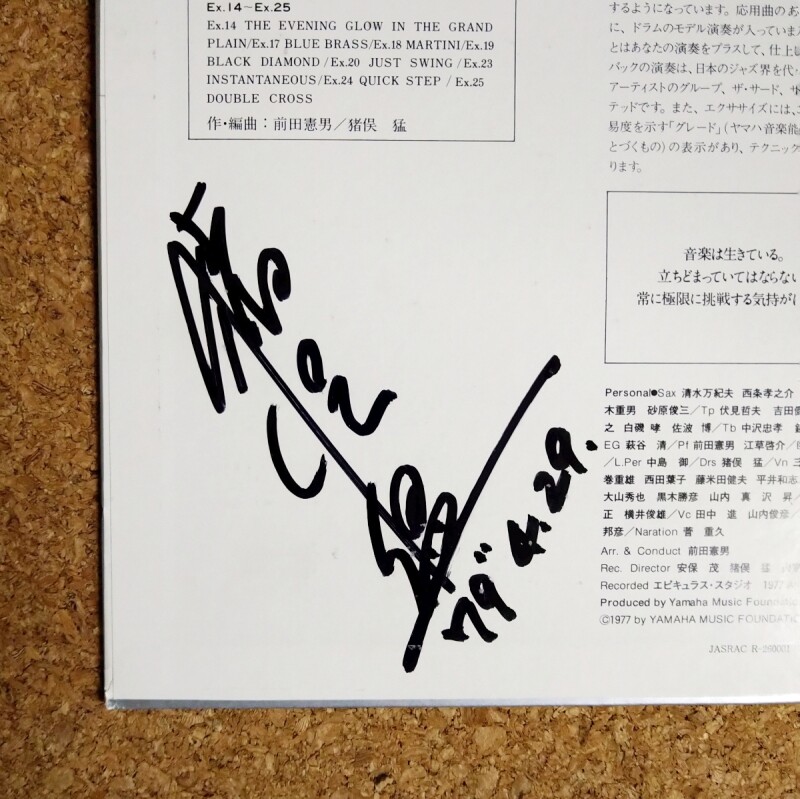 Ex.14〜Ex.25
Ex.14 THE EVENING GLOW IN THE GRAND
PLAIN/Ex.17 BLUE BRASS/Ex.18 MARTINI/Ex.19
BLACK DIAMOND/Ex.20 JUST SWING/Ex.23
INSTANTANEOUS/Ex.24 QUICK STEP / Ex.25
DOUBLE CROSS
作・編曲：前田憲男／猪俣 猛
するようになっています。応用曲のあ
に、ドラムのモデル演奏が入っていま
とはあなたの演奏をプラスして、仕上
バックの演奏は、日本のジャズ界を代
アーティストのグループ、ザ・サード、
テッドです。また、エクササイズには、
易度を示す「グレード」(ヤマハ音楽能
とづくもの)の表示があり、テクニック
ります。
音楽は生きている。
立ちどまっていてはならない
常に極限に挑戦する気持が
Personal●Sax 清水万紀夫 西条孝之介
木重男 砂原俊三／Tp 伏見哲夫 吉田
之 白磯 哮 佐波 博／Tb 中沢忠孝
EG 萩谷 清／Pf 前田憲男 江草啓介／
／L.Per 中島 御／Drs 猪俣 猛／Vn 三
巻重雄 西田葉子 藤米田健夫 平井和志
大山秀也 黒木勝彦 山内 真 沢 昇
正 横井俊雄／Vc 田中 進 山内俊彦
邦彦／Naration 菅 重久
Arr. & Conduct 前田憲男
Rec. Director 安保 茂 猪俣 猛
Recorded エピキュラス・スタジオ 1977
Produced by Yamaha Music Foundation
©1977 by YAMAHA MUSIC FOUNDATION
JASRAC R-260001
79" 4. 29.